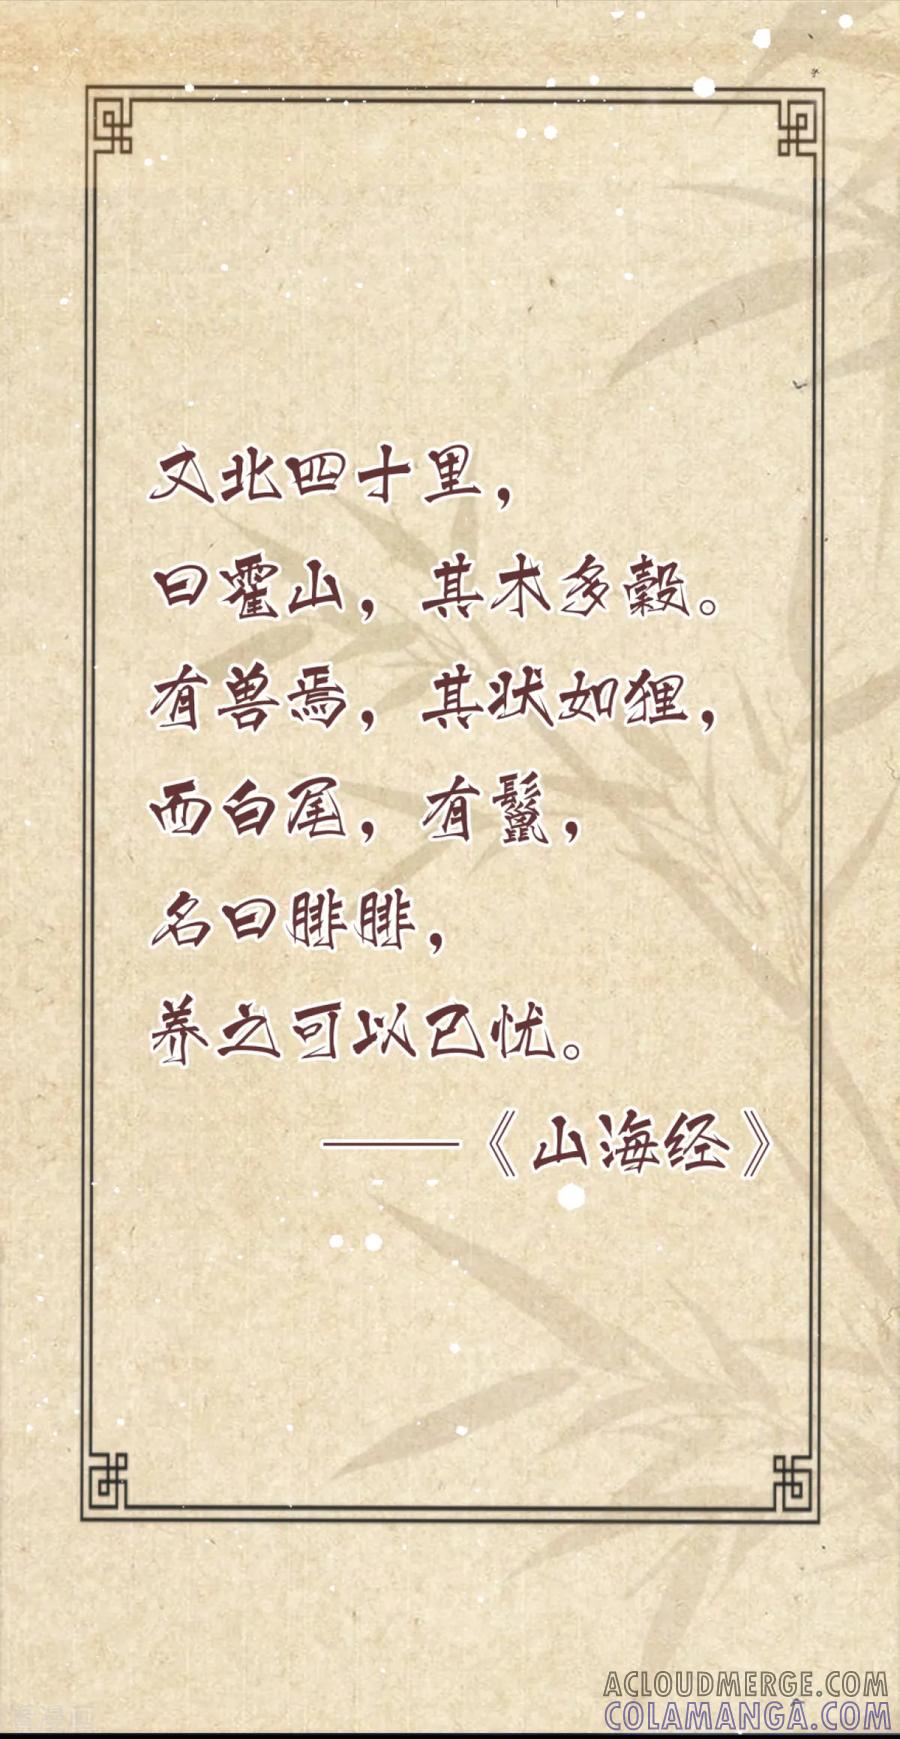 又北四十里，
曰霍山，其木多榖。
有兽焉，其状如狸，
而白尾，有鬣，
名曰腓腓，
养之可以已忧。
——《山海经》
ACLOUDMERGE.COM
COLAMANGA.COM